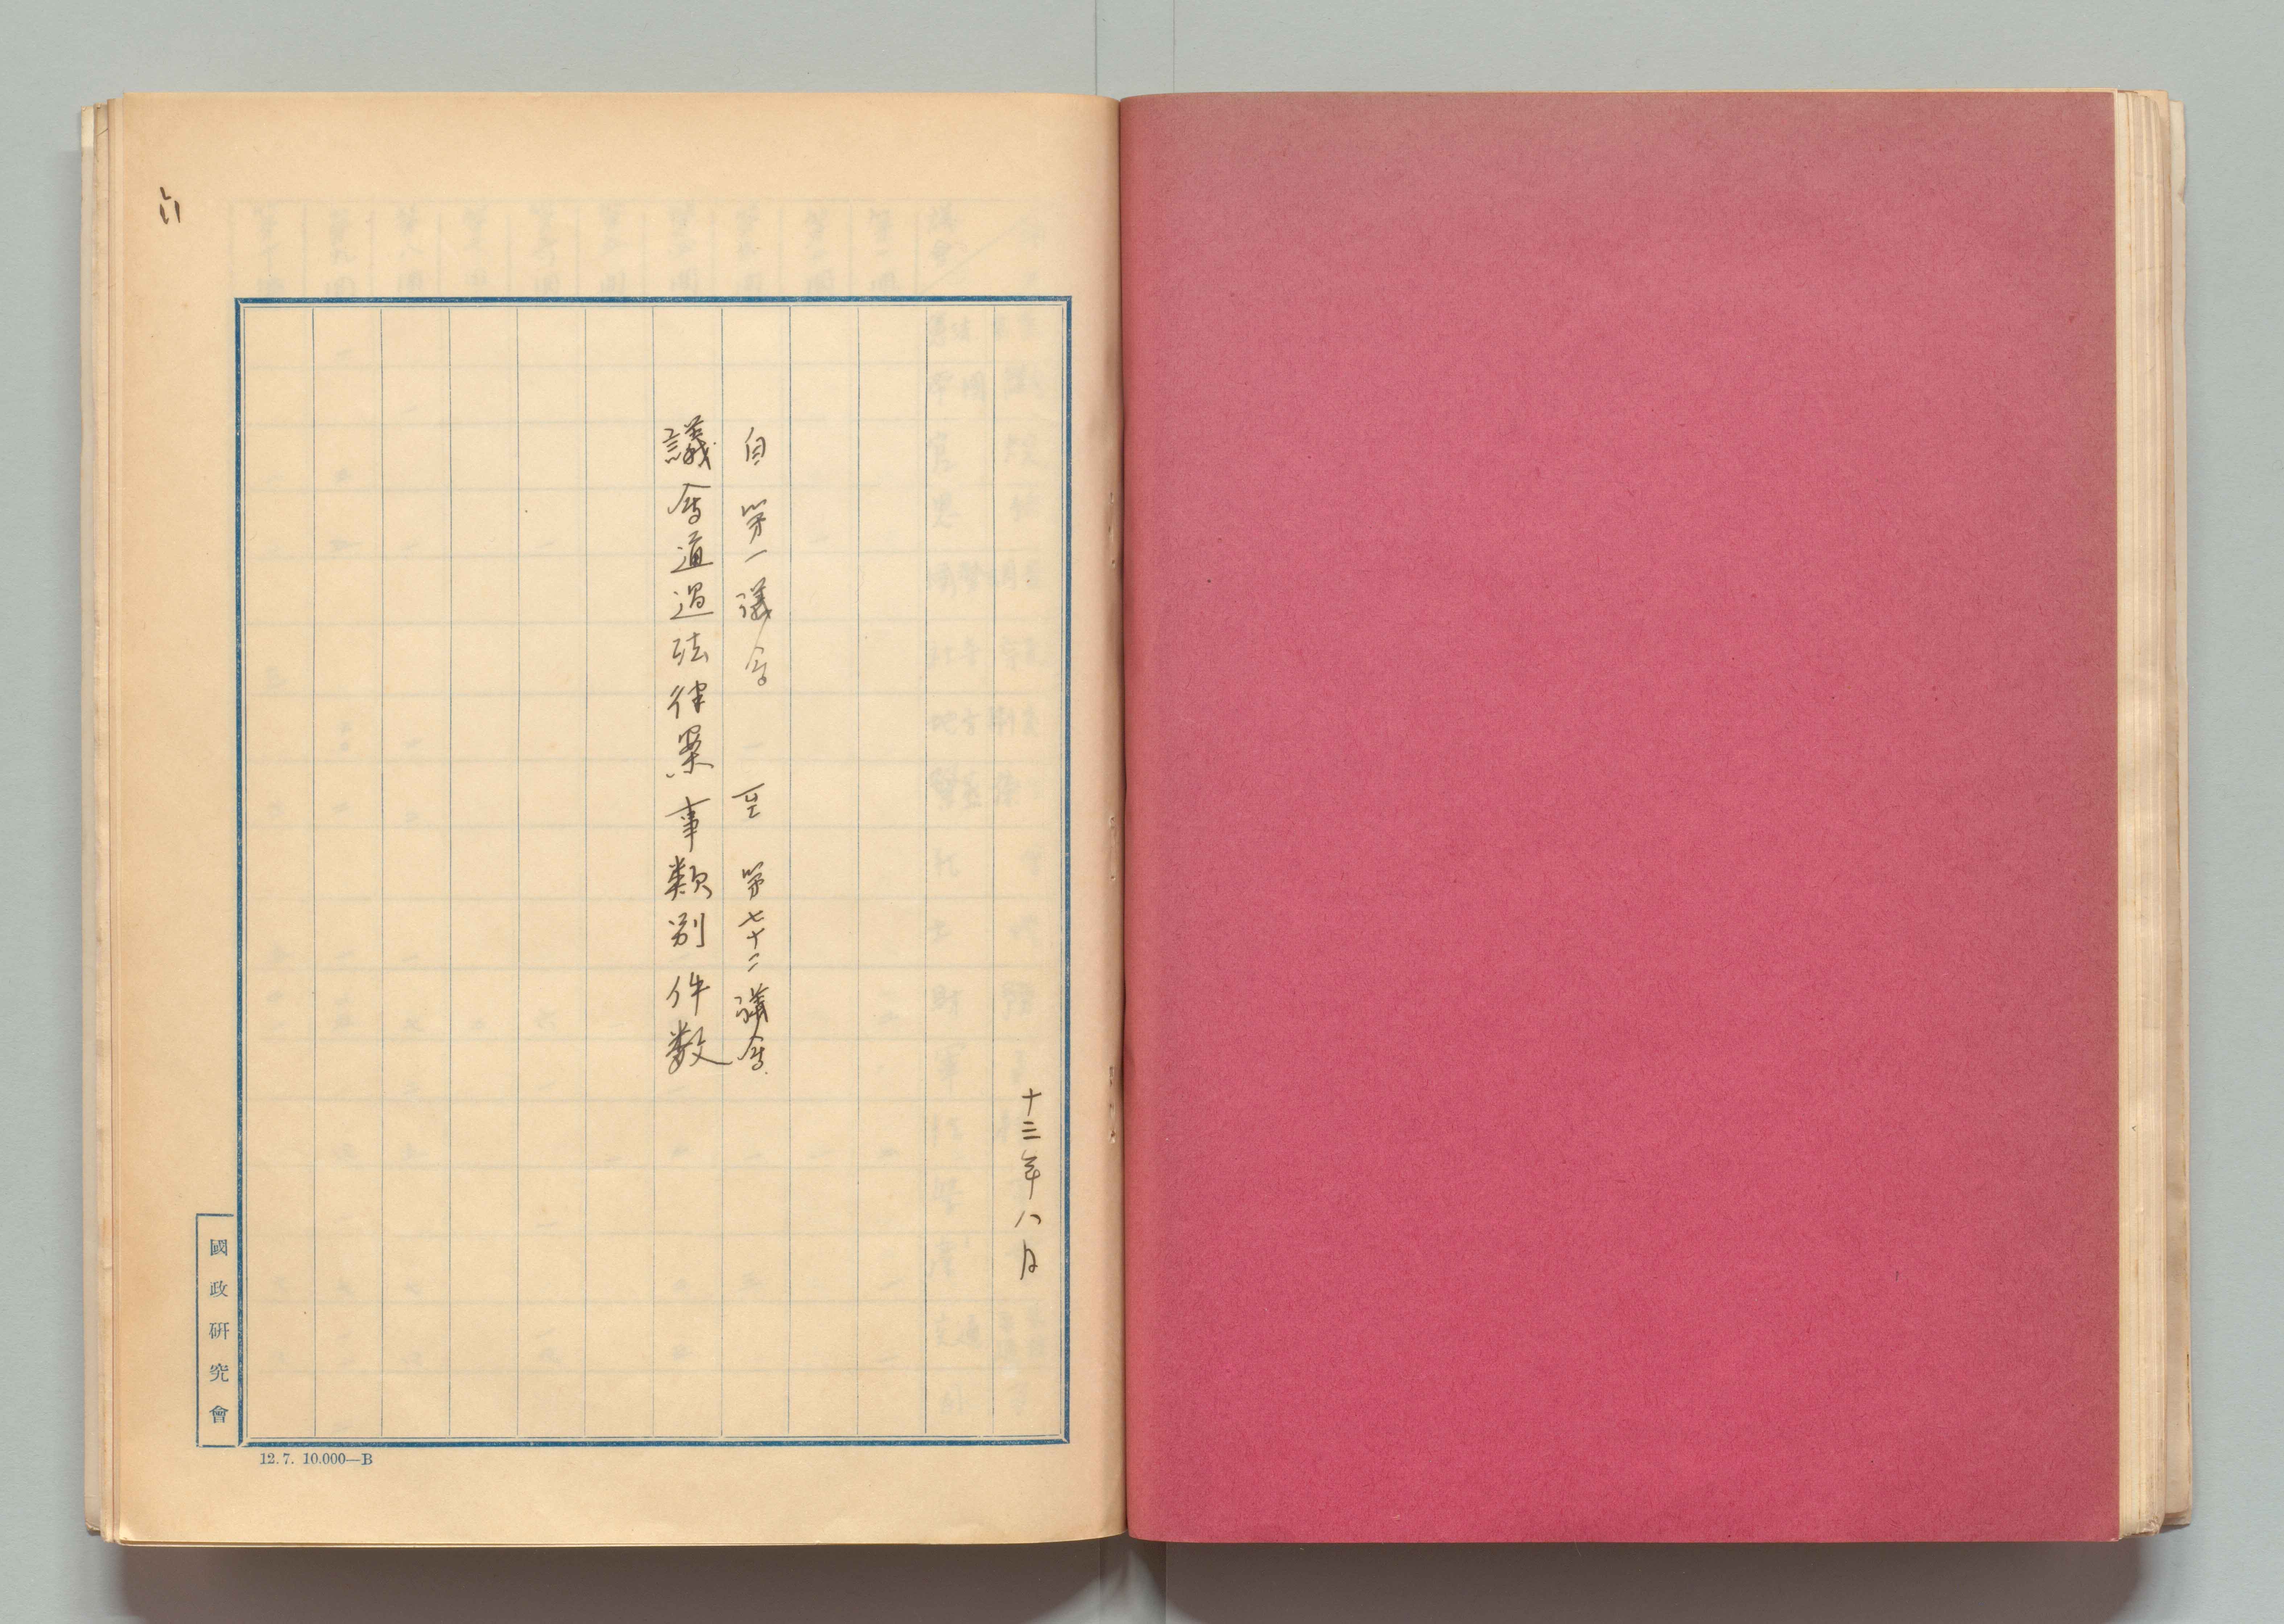 十三年八月
自 第一議会 至 第七十二議会
議会通過法律案事類別件数
六
國政研究會
12.7. 10.000—B